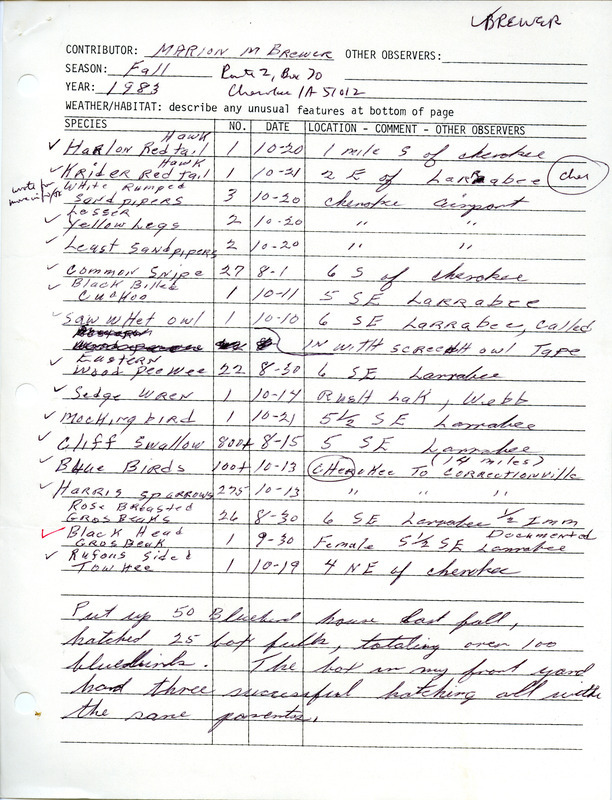 ✓BREWER
CONTRIBUTOR: MARION M BREWER OTHER OBSERVERS:
SEASON: Fall Route 2, Box 70
YEAR: 1983 Cherokee IA 51012
WEATHER/HABITAT: describe any unusual features at bottom of page
SPECIES NO. DATE LOCATION - COMMENT - OTHER OBSERVERS
Hawk
✓ Harlon Red tail 1 10-20 1 mile S of cherokee
Hawk
✓ Krider Red tail 1 10-21 2 E of Larrabee Cher
White Rumped
Sandpipers 3 10-20 cherokee airport
Lesser
✓ Yellow Legs 2 10-20 " "
✓ Least Sandpipers 2 10-20 " "
✓ Common Snipe 27 8-1 6 S of cherokee
✓ Black Billed
Cuckoo 1 10-11 5 SE Larrabee
✓ Saw Whet owl 1 10-10 6 SE Larrabee, Called
IN WITH SCREECH OWL Tape
✓ Eastern
Wood Peewee 22 8-30 6 SE Larrabee
✓ Sedge Wren 1 10-14 Rush Lak, Webb
✓ Mockingbird 1 10-21 5 1/2 SE Larrabee
✓ Cliff Swallow 800+ 8-15 5 SE Larrabee
(14 miles)
✓ Blue Birds 100+ 10-13 CHEROKEE To CORRECTIONVILLE
✓ Harris Sparrows 275 10-13 " "
Rose Breasted
GROSBEAKS 26 8-30 6 SE Larrabee 1/2 Imm
✓ Black Head Documented
GROSBEAK 1 9-30 Female 5 1/2 SE Larrabee
✓ Rufous Sided
Towhee 1 10-19 4 NE of cherokee
Put up 50 Bluebird house last fall,
hatched 25 box fulls, totaling over 100
bluebirds. The box in my front yard
had three successful hatching all with
the same parents.